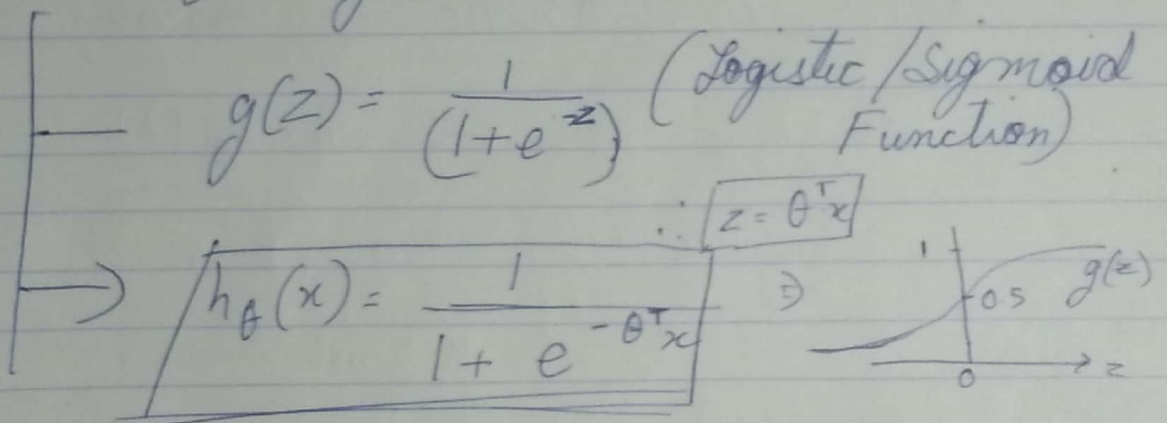 g(z) = 1/(1+e^-z) (Logistic/Sigmoid
Function)
∴ z = θ^T x
h_θ(x) = 1/(1 + e^-θ^T x) ⇒
1
0.5 g(z)
0 z